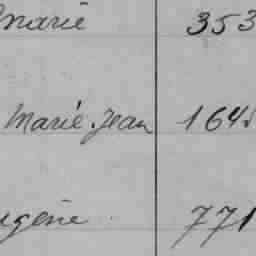 Marie 353
Marie. Jean 1645
771